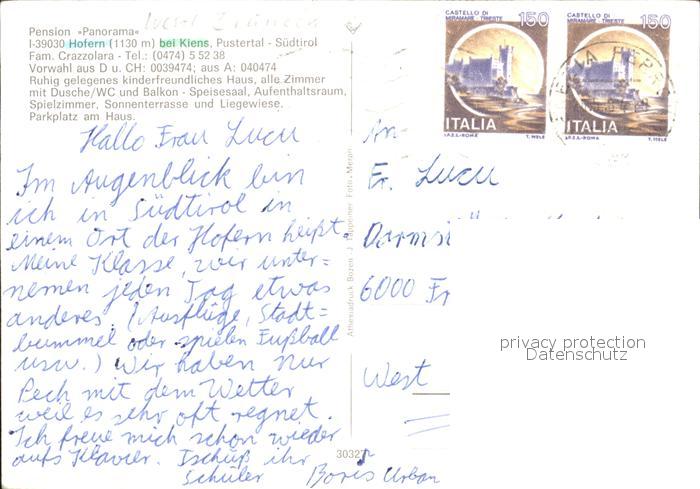 Pension »Panorama«
I-39030 Hofern (1130 m) bei Kiens, Pustertal - Südtirol
Fam. Crazzolara - Tel.: (0474) 5 52 38
Vorwahl aus D u. CH: 0039474; aus A: 040474
Ruhig gelegenes kinderfreundliches Haus, alle Zimmer
mit Dusche/WC und Balkon - Speisesaal, Aufenthaltsraum,
Spielzimmer, Sonnenterrasse und Liegewiese.
Parkplatz am Haus.
Hallo Frau Lucu
Im Augenblick bin
ich in Südtirol in
einem Ort der Hofern heißt.
Meine Klasse, wir unter=
nemen jeden Tag etwas
anderes. (Ausflüge, Stadt=
bummel oder spielen Fußball
usw.) Wir haben nur
Pech mit dem Wetter
weil es sehr oft regnet.
Ich freue mich schon wieder
aufs Klavier. Tschüß ihr
Schüler Boris Urban
Athesiadruck Bozen - J. Tappeiner Foto - Meran
30327
CASTELLO DI
MIRAMARE-TRIESTE 150
ITALIA
I.P.Z.S.-ROMA T. MELE
CASTELLO DI
MIRAMARE-TRIESTE 150
ITALIA
I.P.Z.S.-ROMA T. MELE
An
Fr. Lucu
Darmst
6000 Fr
West
privacy protection
Datenschutz